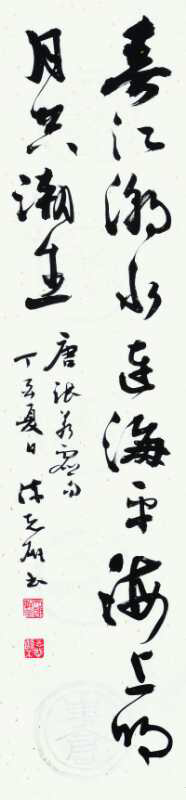 春江潮水连海平海上明
月共潮生
唐张若虚句
丁亥夏日陈克